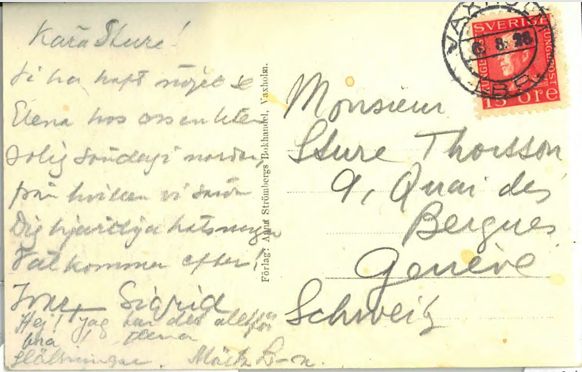 Kära Sture!
Vi ha haft nöjet se
Elena hos oss en liten
solig söndag i norden,
från hvilken vi sända
Dig hjärtliga hälsningar
Välkommen efter!
Sigrid
Hej! jag har det alltför
bra! Elena
Hälsningar. Märta
Förlag: Anna Strömbergs Bokhandel, Vaxholm.
Monsieur
Sture Thorsson
9, Quai des
Bergues
Genève
Schweiz
VAXHOLM
6. 8. 26
SVERIGE
15 ÖRE